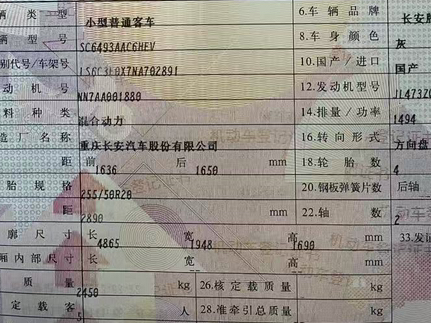 辆 类 型 小型普通客车 6.车 辆 品 牌 长安
辆 型 号 SC6493AAC6HEV 8.车 身 颜 色 灰
别代号/车架号 LS6C3E0X7NA702891 10.国 产 / 进 口 国产
动 机 号 NN7AA001880 12.发 动 机 型 号 JL473Z
料 种 类 混合动力 14.排 量 / 功 率 1494
造 厂 名 称 重庆长安汽车股份有限公司 16.转 向 形 式 方向盘
距 前 1636 后 1650 mm 18.轮 胎 数 4
胎 规 格 255/50R20 20.钢板弹簧片数 后轴
距 2890 mm 22.轴 数 2
廓 尺 寸 长 4865 宽 1948 高 1690 mm 33.发证
厢内部尺寸 长 宽 高 mm
质 量 2450 kg 26.核 定 载 质 量 kg
定 载 客 5 人 28.准牵引总质量 kg